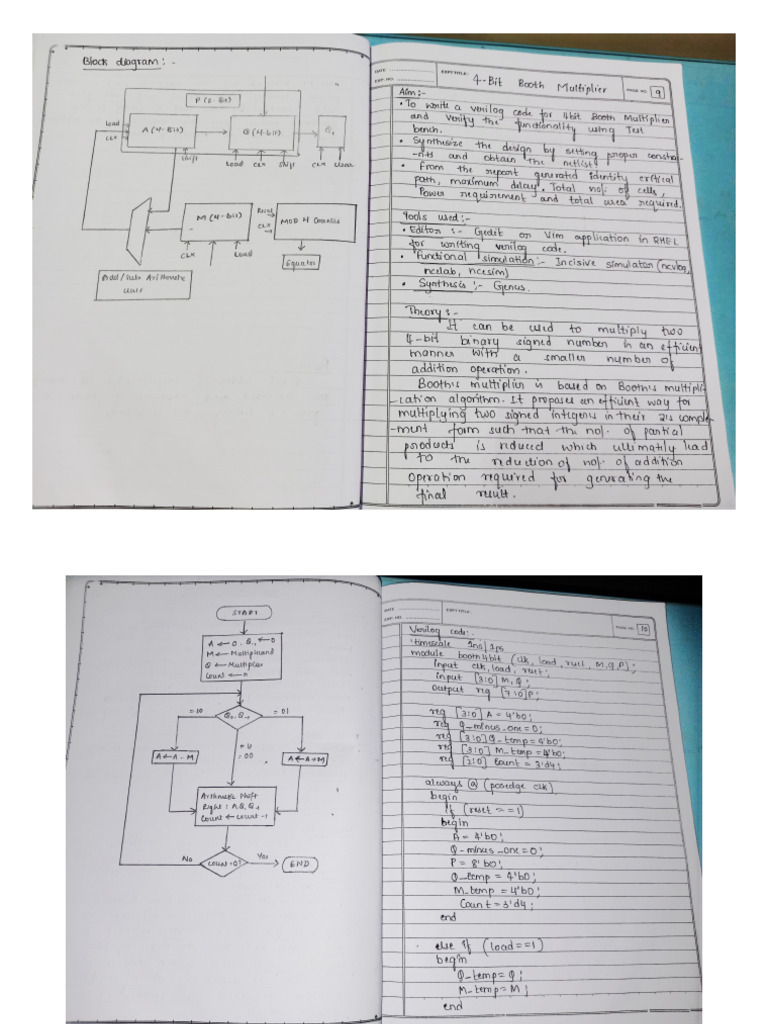 Block diagram:-
P(8-Bit)
Load
CLK
A(4-Bit)
Q(4-bit)
Shift
Load
CLK
Shift
CLK
M(4-bit)
Reset
CLK
MOD N Counter
CLK
Load
Equator
Add/Sub Arithmetic
Unit
DATE
EXPT. TITLE:
4-Bit Booth Multiplier
EXP. NO.
PAGE NO.
9
Aim:-
• To write a verilog code for 4bit Booth Multiplier
and verify the functionality using Test
bench.
• Synthesize the design by setting proper constrai-
-nts and obtain the netlist.
• From the report generated identity critical
path, maximum delay, Total no/: of cells,
Power requirement and total area required.
Tools used:-
• Editor :- Gedit or Vim application in RHEL
for writing verilog code.
• Functional simulation:- Incisive simulator (ncvlog,
ncelab, ncesim)
• Synthesis :- Genus.
Theory:-
It can be used to multiply two
4-bit binary signed number in an efficient
manner with a smaller number of
addition operation.
Booth's multiplier is based on Booth's multipli-
-cation algorithm. It proposes an efficient way for
multiplying two signed intigers in their 2's comple-
-ment form such that the no/. of partial
products is reduced which ultimatily lead
to the reduction of no/. of addition
operation required for generating the
final result.
START
A ← 0, Q-1 ← 0
M ← Multiplicand
Q ← Multiplier
Count ← n
= 10
Q0,Q-1
= 01
= 11
= 00
A ← A - M
A ← A + M
Arithmetic Shift
Right : A,Q,Q-1
Count ← count -1
No
Count=0?
Yes
END
DATE
EXPT. TITLE:
EXP. NO.
PAGE NO.
10
Verilog code:-
`timescale 1ns/1ps
module booth4bit (clk, load, reset, M,Q,P);
input clk, load, reset;
input [3:0] M, Q;
output reg [7:0]P;
reg [3:0] A = 4'b0;
reg Q-minus-one=0;
reg [3:0]Q-temp=4'b0;
reg [3:0] M-temp=4'b0;
reg [2:0] Count = 3'd4;
always @ (posedge clk)
begin
if (reset == 1)
begin
A = 4'b0;
Q-minus-one=0;
P = 8'b0;
Q-temp = 4'b0;
M-temp = 4'b0;
Count = 3'd4;
end
else if (load==1)
begin
Q-temp = Q;
M-temp = M;
end